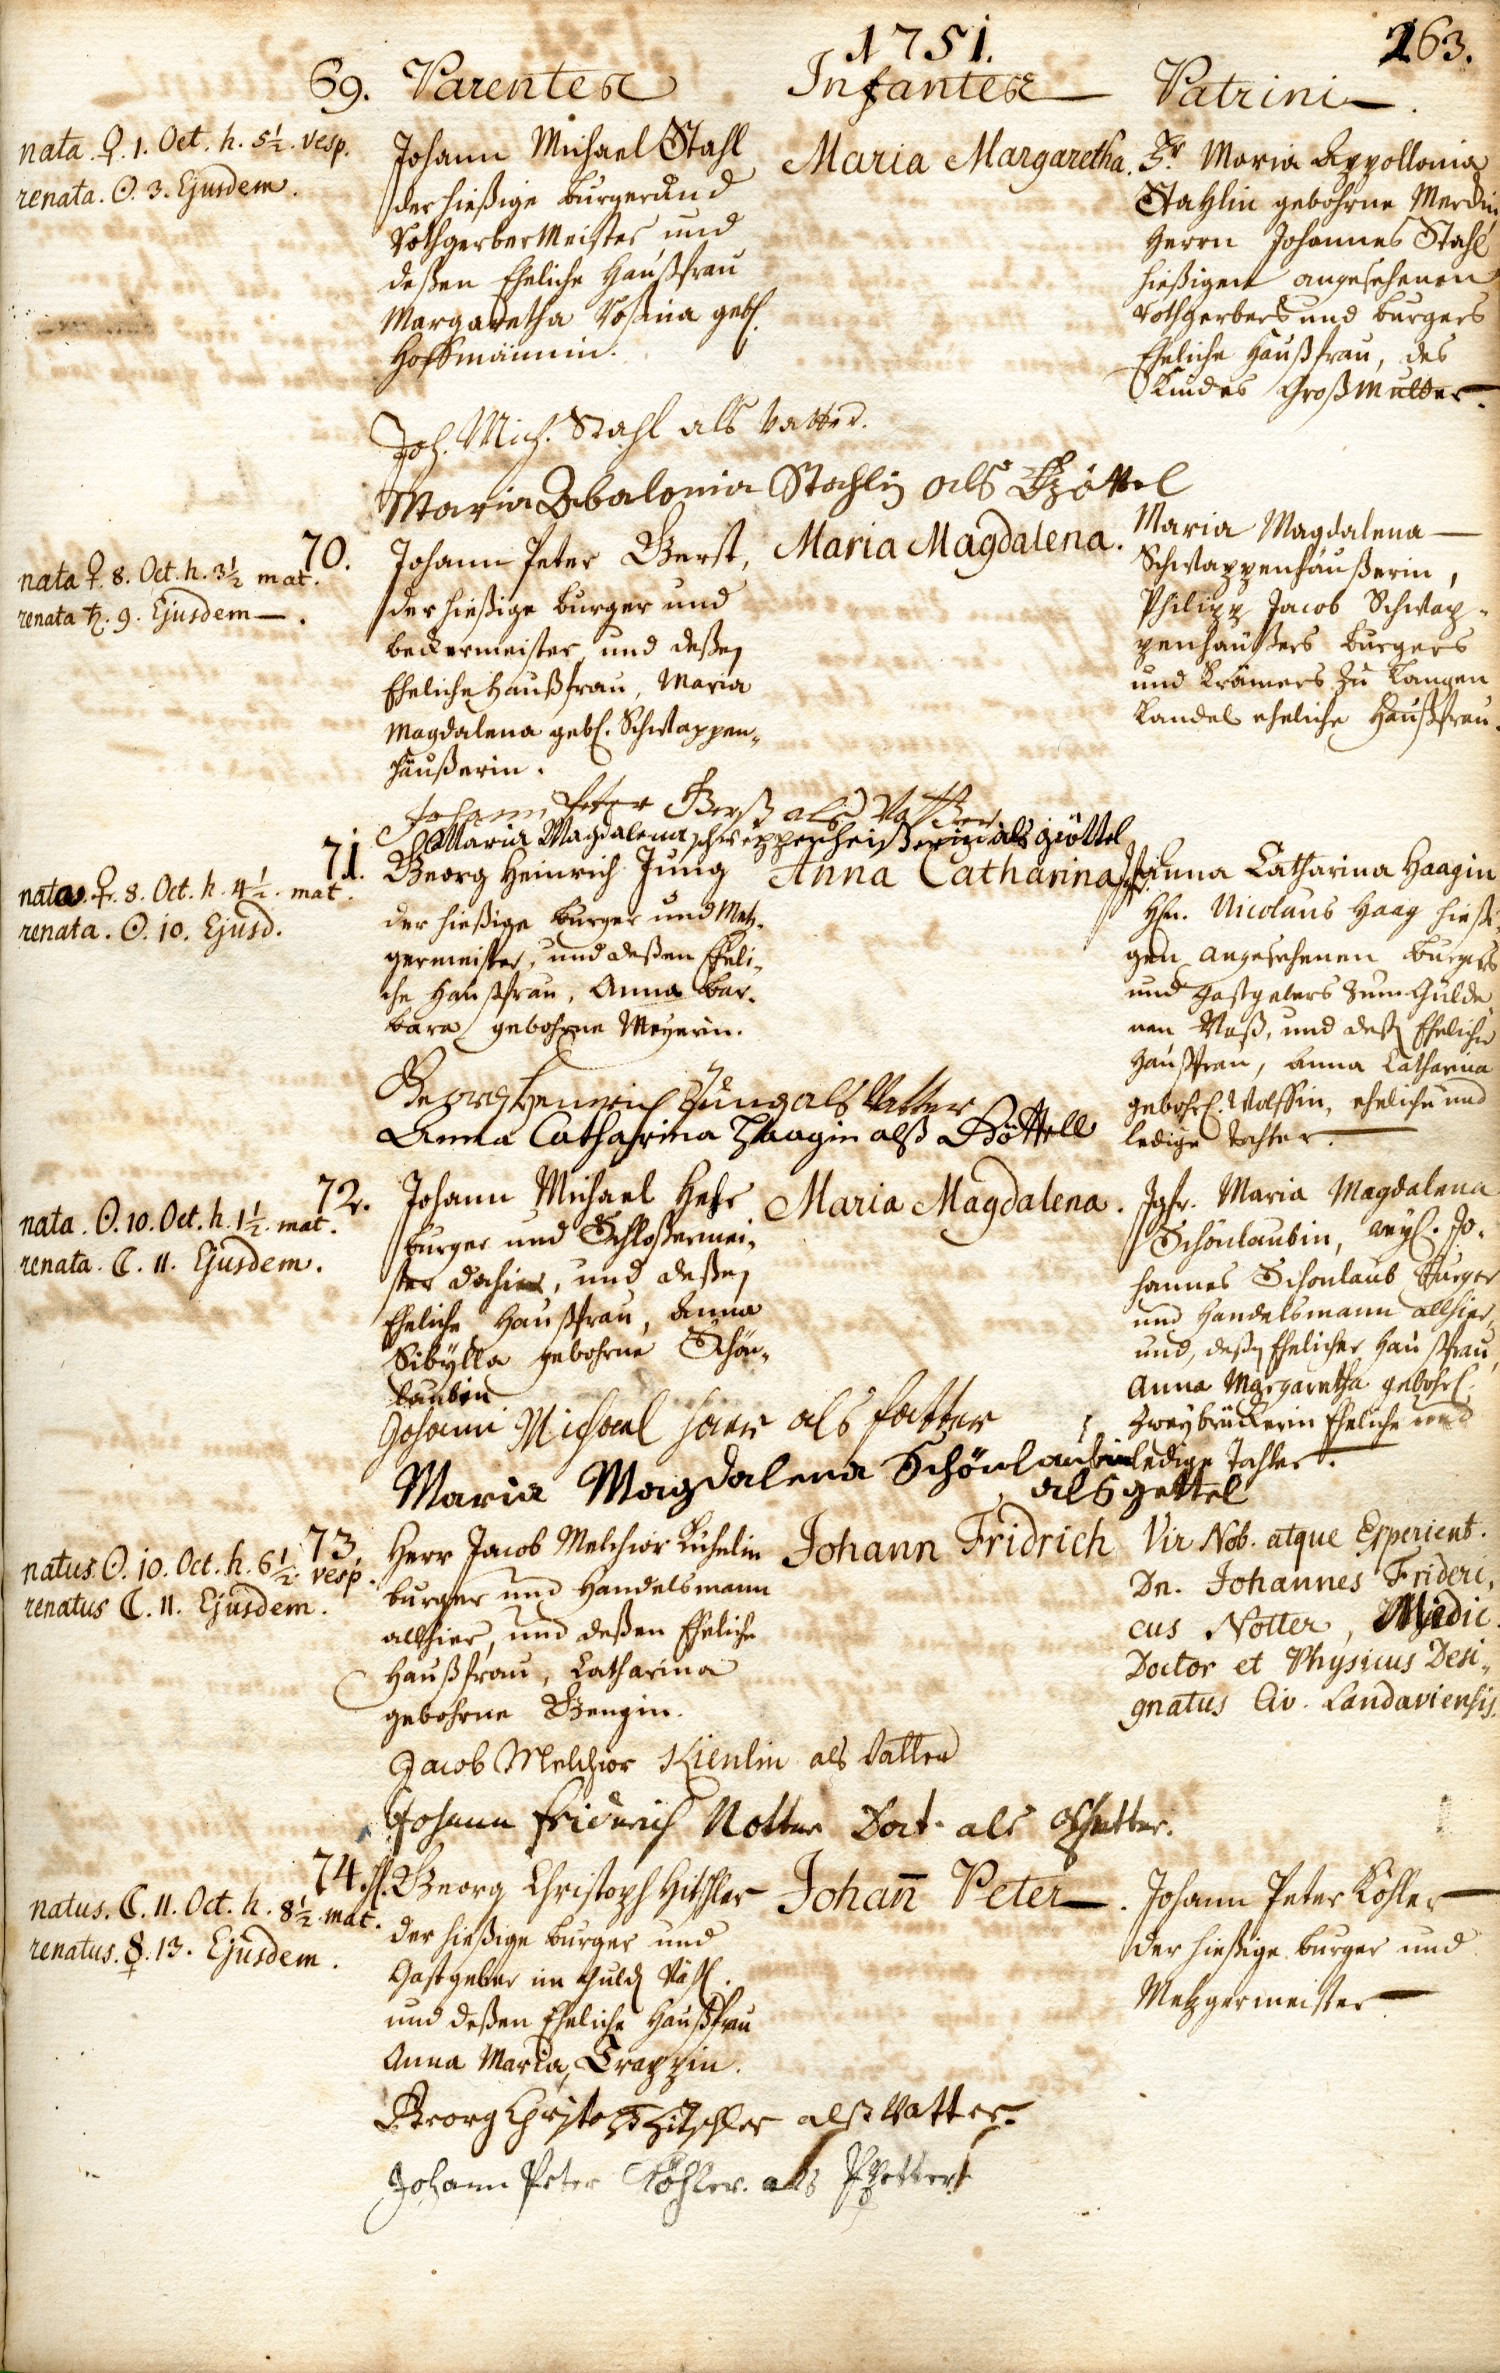 1751.
263.
Parentes
Infantes
Patrini
69.
nata. ♀. 1. Oct. h. 5½. vesp.
renata. ☉. 3. Ejusdem.
Johann Michael Stahl
der hießige burger und
Rothgerber Meister und
deßen Eheliche Haußfrau
Margaretha Rosina geb.
Hoffmännin.
Maria Margaretha.
Fr. Maria Appollonia
Stahlin gebohrne
Herrn Johannes Stahl
hießigen angesehenen
rothgerbers und burgers
Eheliche Haußfrau, des
Kindes Großmutter.
Joh. Mich. Stahl als Vatter.
Maria Abalonia Stahlin als Göttel
70.
nata ♀. 8. Oct. h. 3½ mat.
renata ♄. 9. Ejusdem.
Johann Peter Gerst,
der hießige burger und
beckermeister, und deßen
Eheliche Haußfrau, Maria
Magdalena geb. Schwappen-
häußerin.
Maria Magdalena.
Maria Magdalena
Schwappenhäußerin,
Philipp Jacob Schwap-
penhäußers burgers
und Krämers zu Langen
Kandel eheliche Haußfrau.
Johann Peter Gerst als Vatter
Maria Magdalena schweppenheißerin als göttel
71.
nata. ♀. 8. Oct. h. 4½. mat.
renata. ☉. 10. Ejusd.
Georg Heinrich Jung
der hießige burger und Metz-
germeister, und deßen Eheli-
che Haußfrau, Anna Bar-
bara gebohrne Meyerin.
Anna Catharina
Anna Catharina Haagin
Hn. Nicolaus Haag hießi-
gen angesehenen burgers
und Gastgebers zum Gülde-
nen Roß, und deßen Eheliche
Haußfrau, Anna Catharina
gebohr. Wolffin, eheliche und
ledige Tochter.
Georg Henrich Jung als Vatter
Anna Catharina Haagin alß Göttell
72.
nata. ☉. 10. Oct. h. 1½. mat.
renata. ☾. 11. Ejusdem.
Johann Michael Hehr
burger und Schloßermei-
ster dahier, und deßen
Eheliche Haußfrau, Anna
Sibylla gebohrne Schön-
laubin
Maria Magdalena.
Jgfr. Maria Magdalena
Schönlaubin, weyl. Jo-
hannes Schönlaub burger
und Handelsmann allhier,
und, deßen Ehelicher Haußfrau,
Anna Margaretha gebohr.
Zweybrückerin Eheliche und
ledige Tochter.
Johann Michael haer als fatter
Maria Magdalena Schönlaubin
als gettel
73.
natus. ☉. 10. Oct. h. 6½. vesp.
renatus ☾. 11. Ejusdem.
Herr Jacob Melchior Kühnlin
burger und Handelsmann
allhier, und deßen Eheliche
Haußfrau, Catharina
gebohrne Gengin.
Johann Fridrich
Vir Nob. atque Experient.
Dn. Johannes Frideri-
cus Notter, Medic.
Doctor et Physicus Desi-
gnatus Civ. Landaviensis.
Jacob Melchior Kienlin als Vatter
Johann Friderich Notter Doct. als Pfetter.
74.
natus. ☾. 11. Oct. h. 8½. mat.
renatus. ☿. 13. Ejusdem.
H. Georg Christoph Hitschler
der hießige burger und
Gastgeber im Guld
und deßen Eheliche Haußfrau
Anna Maria, Trappin.
Johann Peter
Johann Peter Köhler
der hießige burger und
Metzgermeister
Georg Christoph Hitschler alß Vatter.
Johann Peter Köhler als Pfetter